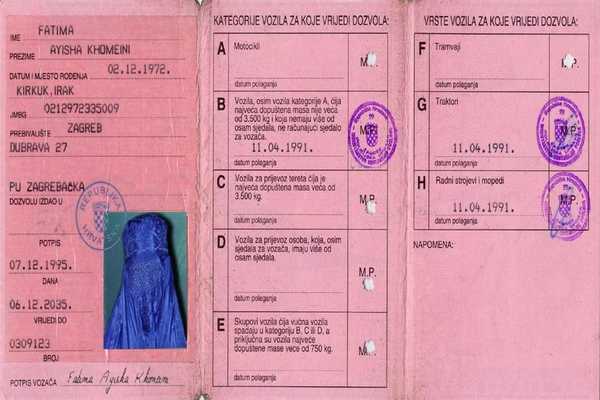 FATIMA
IME
AYISHA KHOMEINI
PREZIME
02.12.1972.
DATUM I MJESTO ROĐENJA
KIRKUK, IRAK
0212972335009
JMBG
ZAGREB
PREBIVALIŠTE
DUBRAVA 27
PU ZAGREBAČKA
DOZVOLU IZDAO U
REPUBLIKA
POTPIS
07.12.1995.
DANA
06.12.2035.
VRIJEDI DO
0309123
BROJ
POTPIS VOZAČA
Fatima Ayisha
KATEGORIJE VOZILA ZA KOJE VRIJEDI DOZVOLA:
A
Motocikli
datum polaganja
B
Vozila, osim vozila kategorije A, čija
najveća dopuštena masa nije veća
od 3.500 kg i koja nemaju više od
osam sjedala, ne računajući sjedalo
za vozača.
M.P.
11.04.1991.
datum polaganja
C
Vozila za prijevoz tereta čija je
najveća dopuštena masa veća od
3.500 kg.
M.P.
datum polaganja
D
Vozila za prijevoz osoba, koja, osim
sjedala za vozača, imaju više od
osam sjedala.
M.P.
datum polaganja
E
Skupovi vozila čija vučna vozila
spadaju u kategoriju B, C ili D, a
priključna su vozila najveće
dopuštene mase veće od 750 kg.
M.P.
datum polaganja
VRSTE VOZILA ZA KOJE VRIJEDI DOZVOLA:
F
Tramvaji
datum polaganja
G
Traktori
M.P.
11.04.1991.
datum polaganja
H
Radni strojevi i mopedi
M.P.
11.04.1991.
datum polaganja
NAPOMENA: